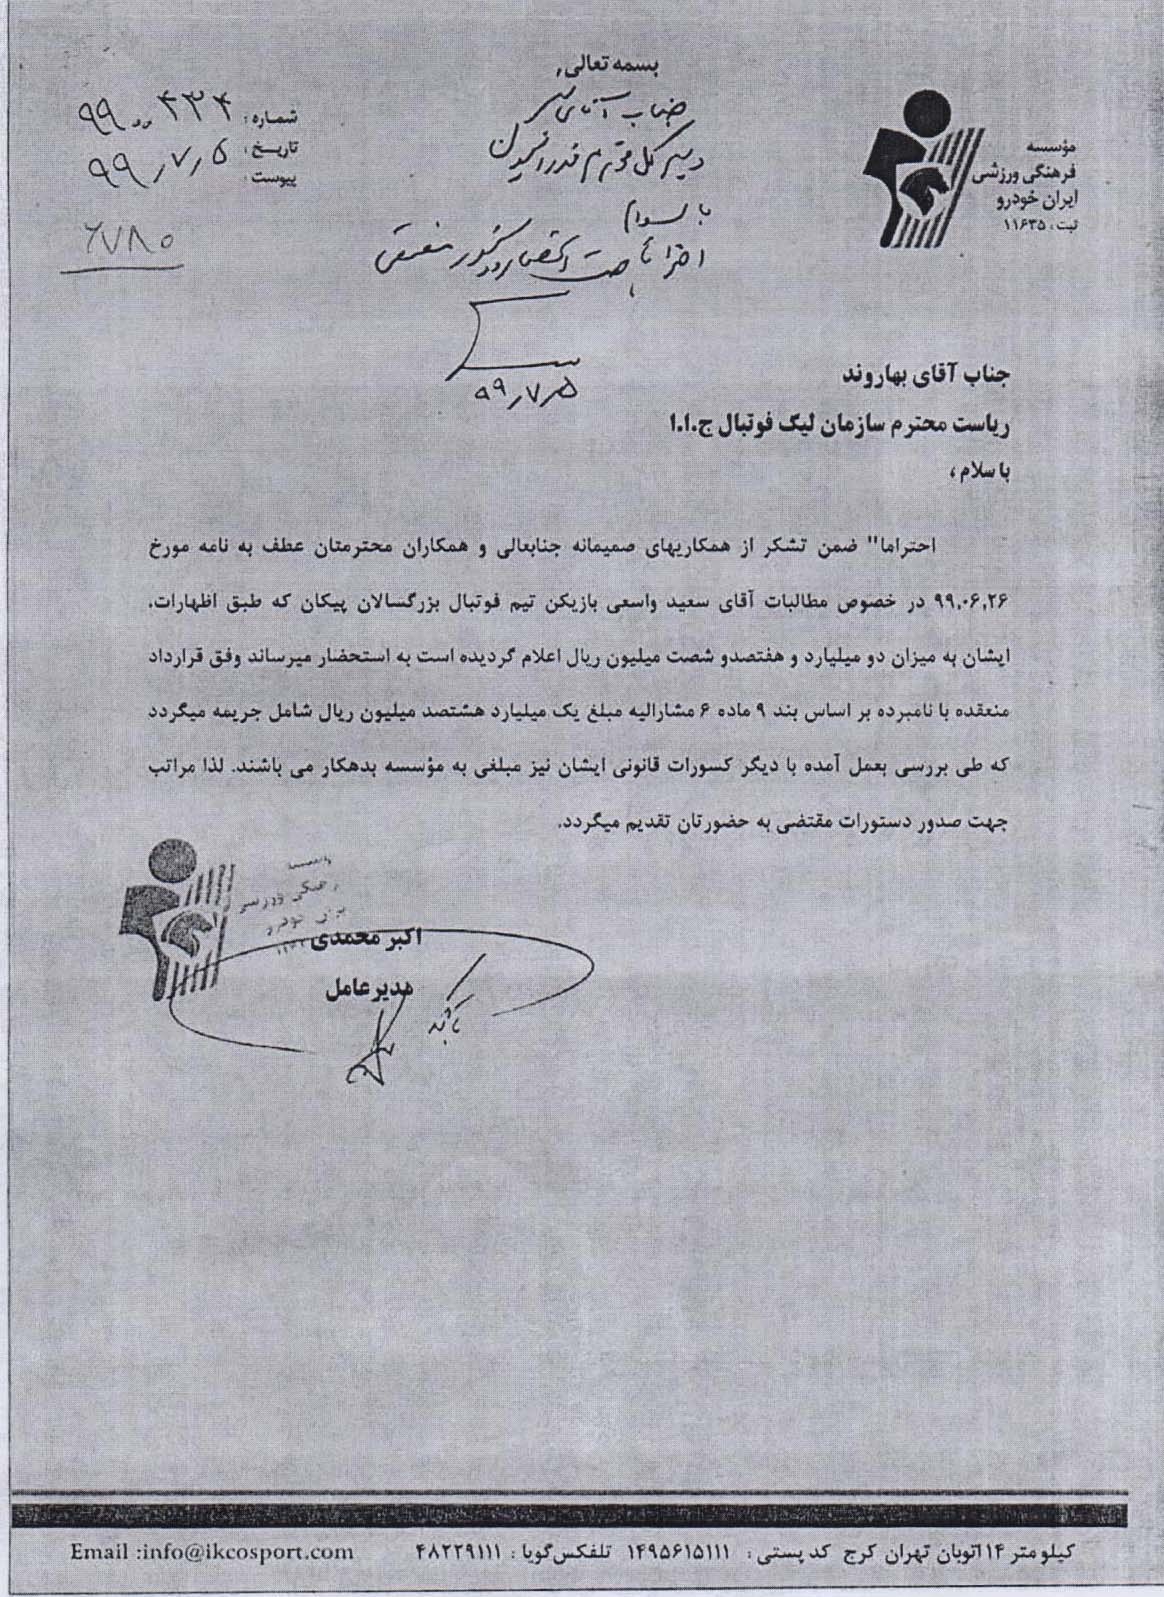 بسمه تعالی
مؤسسه
فرهنگی ورزشی
ایران خودرو
ثبت: ۱۱۶۳۵
شماره: ۹۹۰۰۴۳۴
تاریخ: ۹۹٫۷٫۵
پیوست:
۶۷۸۵
جناب آقای
دبیر کل محترم فدراسیون
با سلام
احتراماً جهت
۹۹٫۷٫۵
جناب آقای بهاروند
ریاست محترم سازمان لیگ فوتبال ج.ا.ا
با سلام ،
احتراما" ضمن تشکر از همکاریهای صمیمانه جنابعالی و همکاران محترمتان عطف به نامه مورخ
۹۹,۰۶,۲۶ در خصوص مطالبات آقای سعید واسعی بازیکن تیم فوتبال بزرگسالان پیکان که طبق اظهارات،
ایشان به میزان دو میلیارد و هفتصدو شصت میلیون ریال اعلام گردیده است به استحضار میرساند وفق قرارداد
منعقده با نامبرده بر اساس بند ۹ ماده ۶ مشارالیه مبلغ یک میلیارد هشتصد میلیون ریال شامل جریمه میگردد
که طی بررسی بعمل آمده با دیگر کسورات قانونی ایشان نیز مبلغی به مؤسسه بدهکار می باشند. لذا مراتب
جهت صدور دستورات مقتضی به حضورتان تقدیم میگردد.
اکبر محمدی
مدیرعامل
کیلومتر ۱۴ اتوبان تهران کرج کد پستی : ۱۴۹۵۶۱۵۱۱۱ تلفکس گویا : ۴۸۲۲۹۱۱۱ Email :info@ikcosport.com